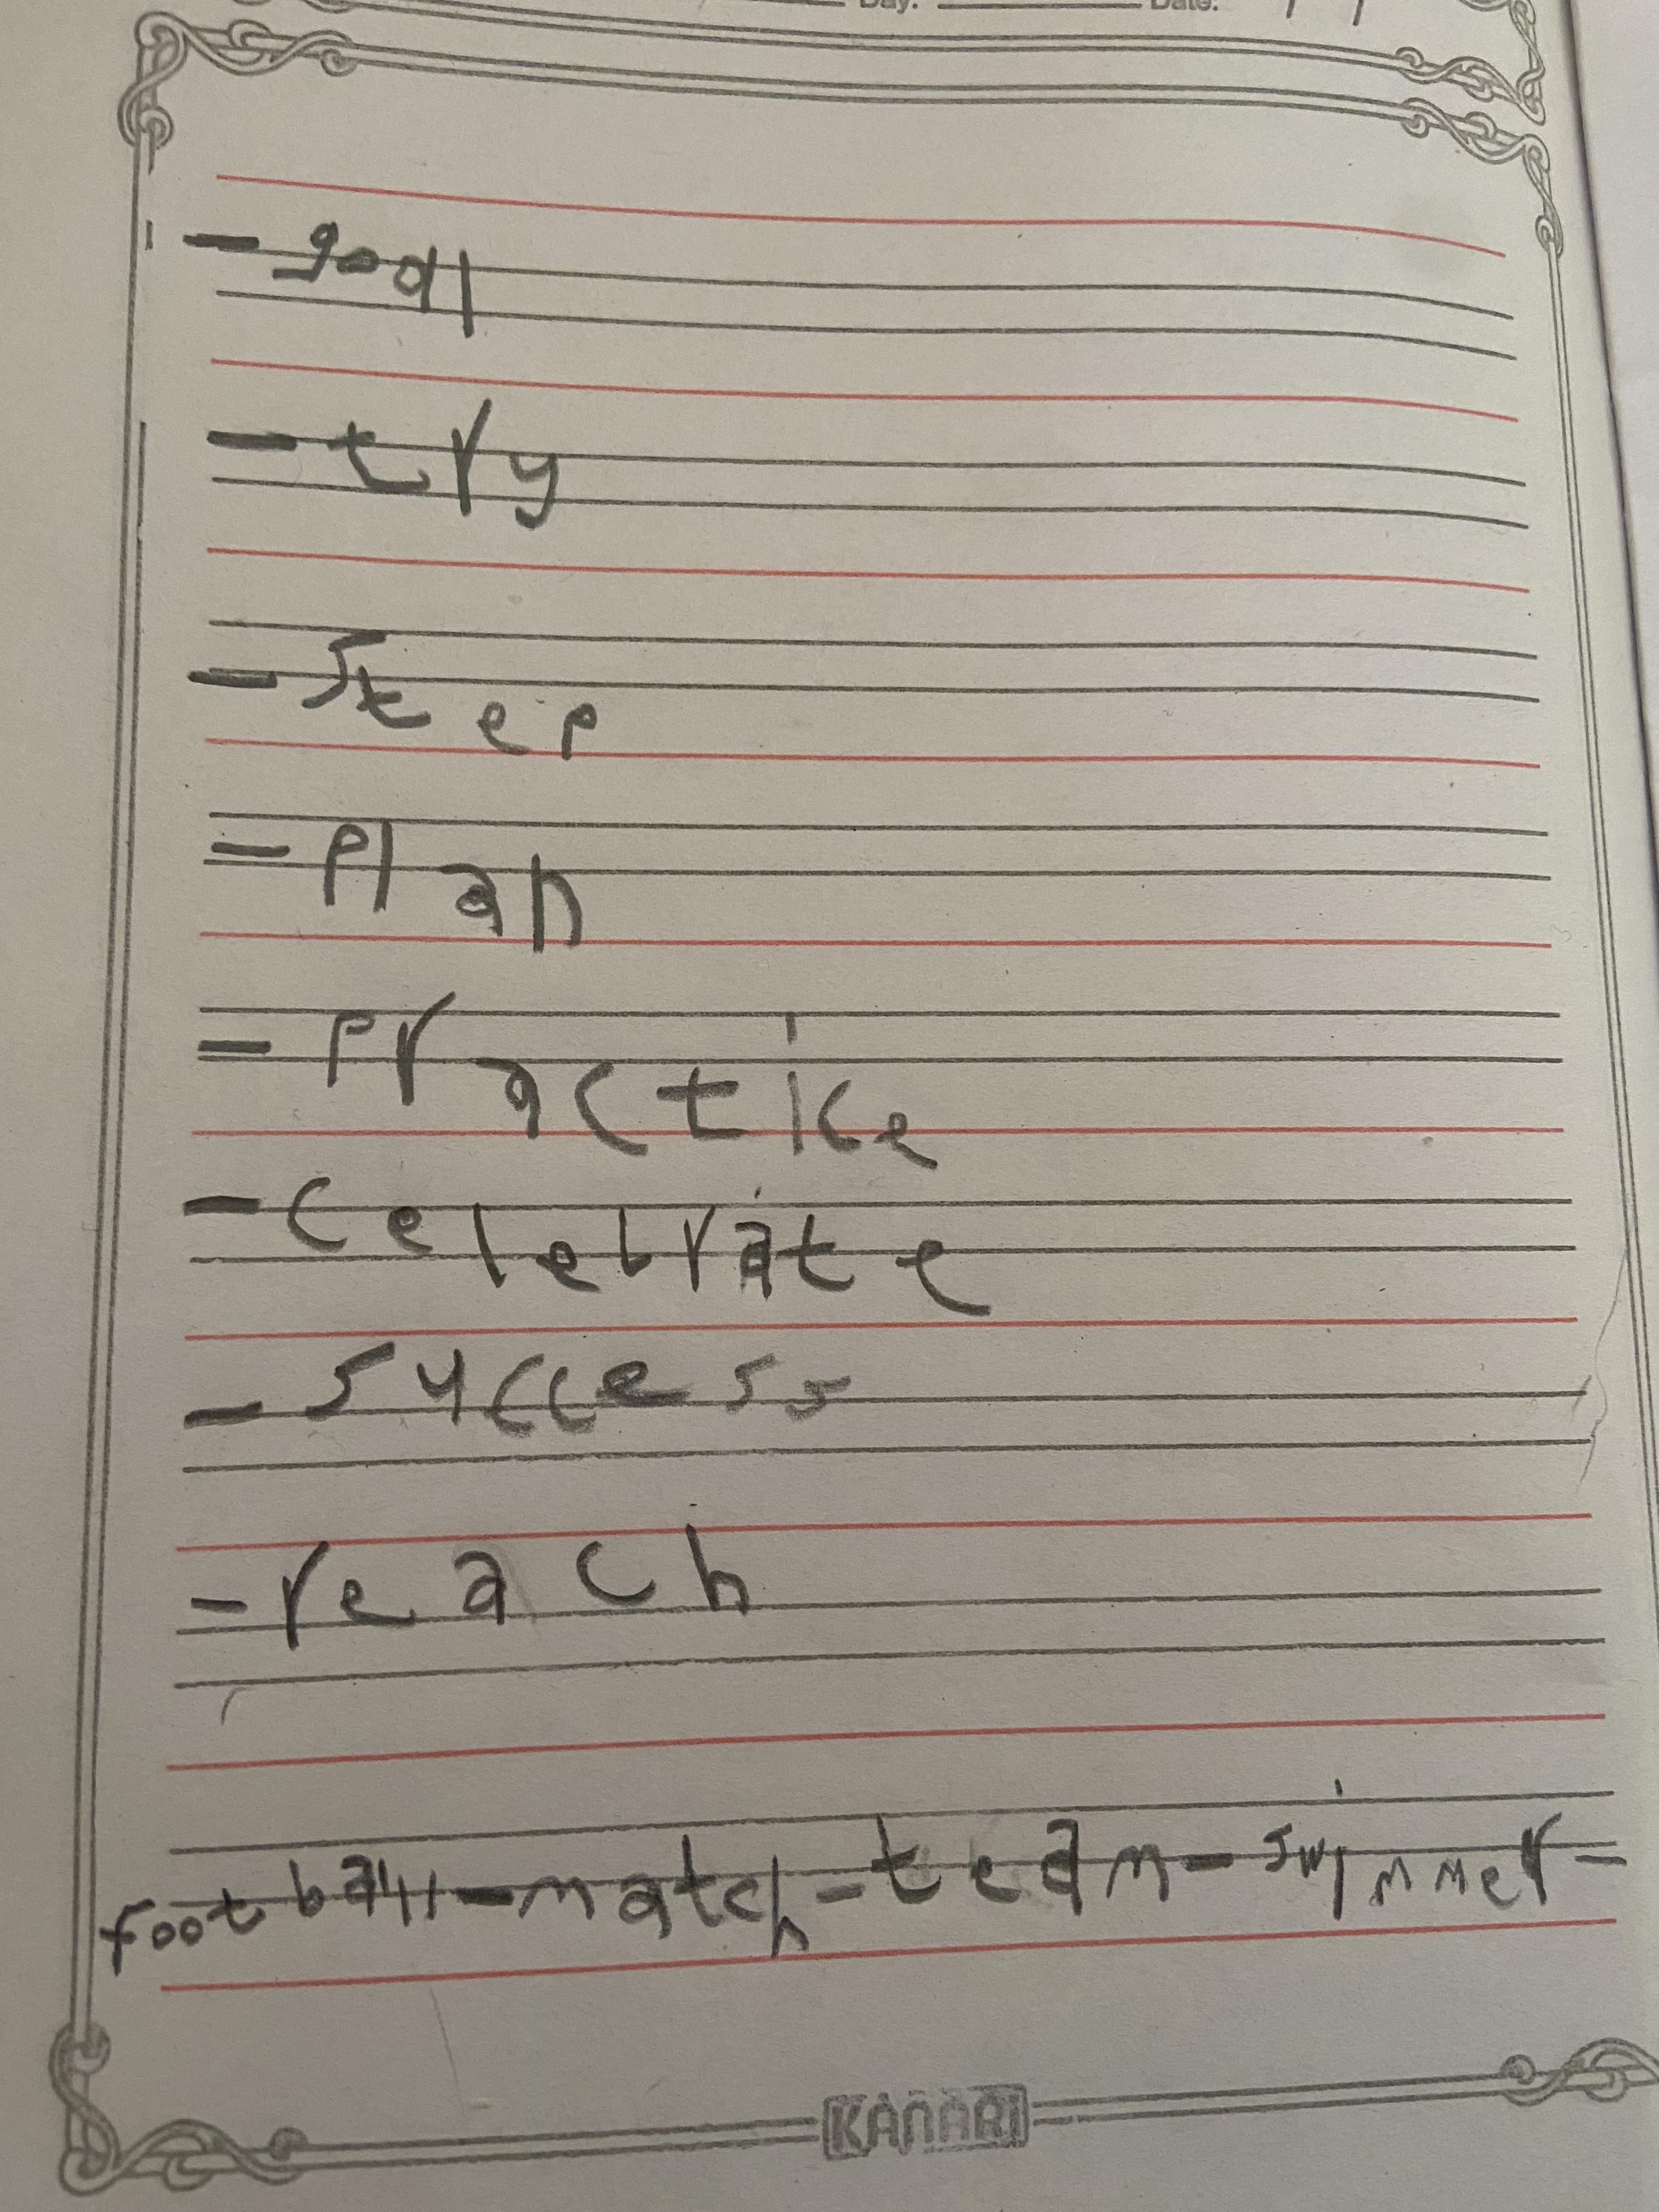 Day: Date:
- goal
- try
- step
- plan
- practice
- celebrate
- success
- reach
football - match - team - swimmer -
KANARI